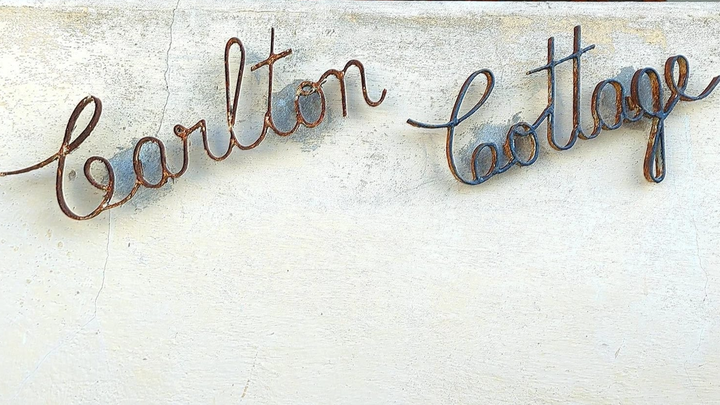 Carlton Cottage